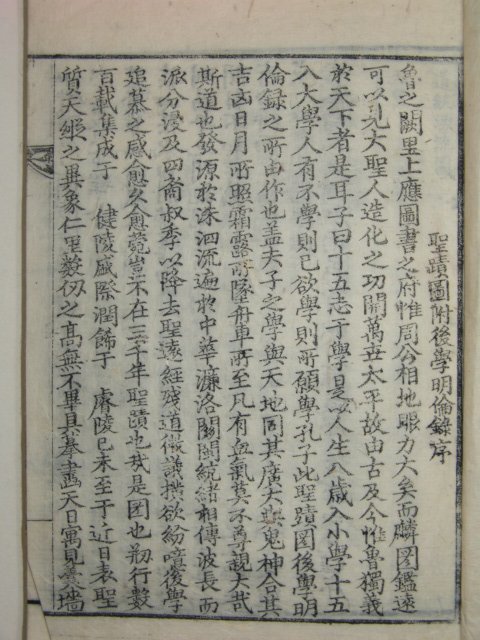 聖蹟圖附後學明倫錄序
魯之闕里上應圖書之府惟周公相地眼力大矣而麟図鑑遠
可以見大聖人造化之功開萬世太平故由古及今惟魯獨義
於天下者是耳子曰十五志于學是以人生八歲入小學十五
入大學人有不學則已欲學則所願學孔子此聖蹟図後學明
倫錄之所由作也盖夫子之學與天地同其廣大與鬼神合其
吉凶日月所照霜露所墜舟車所至凡有血氣莫不尊親大哉
斯道也發源於洙泗流遍於中華濂洛關閩統緒相傳波長而
派分浸及四裔叔季以降去聖遠經殘道微議撰欲紛嗟後學
追慕之感愈久愈荒豈不在三千年聖蹟也哉是図也刱行數
百載集成于 健陵盛際潤餙于 睿陵己未至于近日表聖
質天縱之異象仁里數仞之高無不畢具摹畵天日寓見羹墻